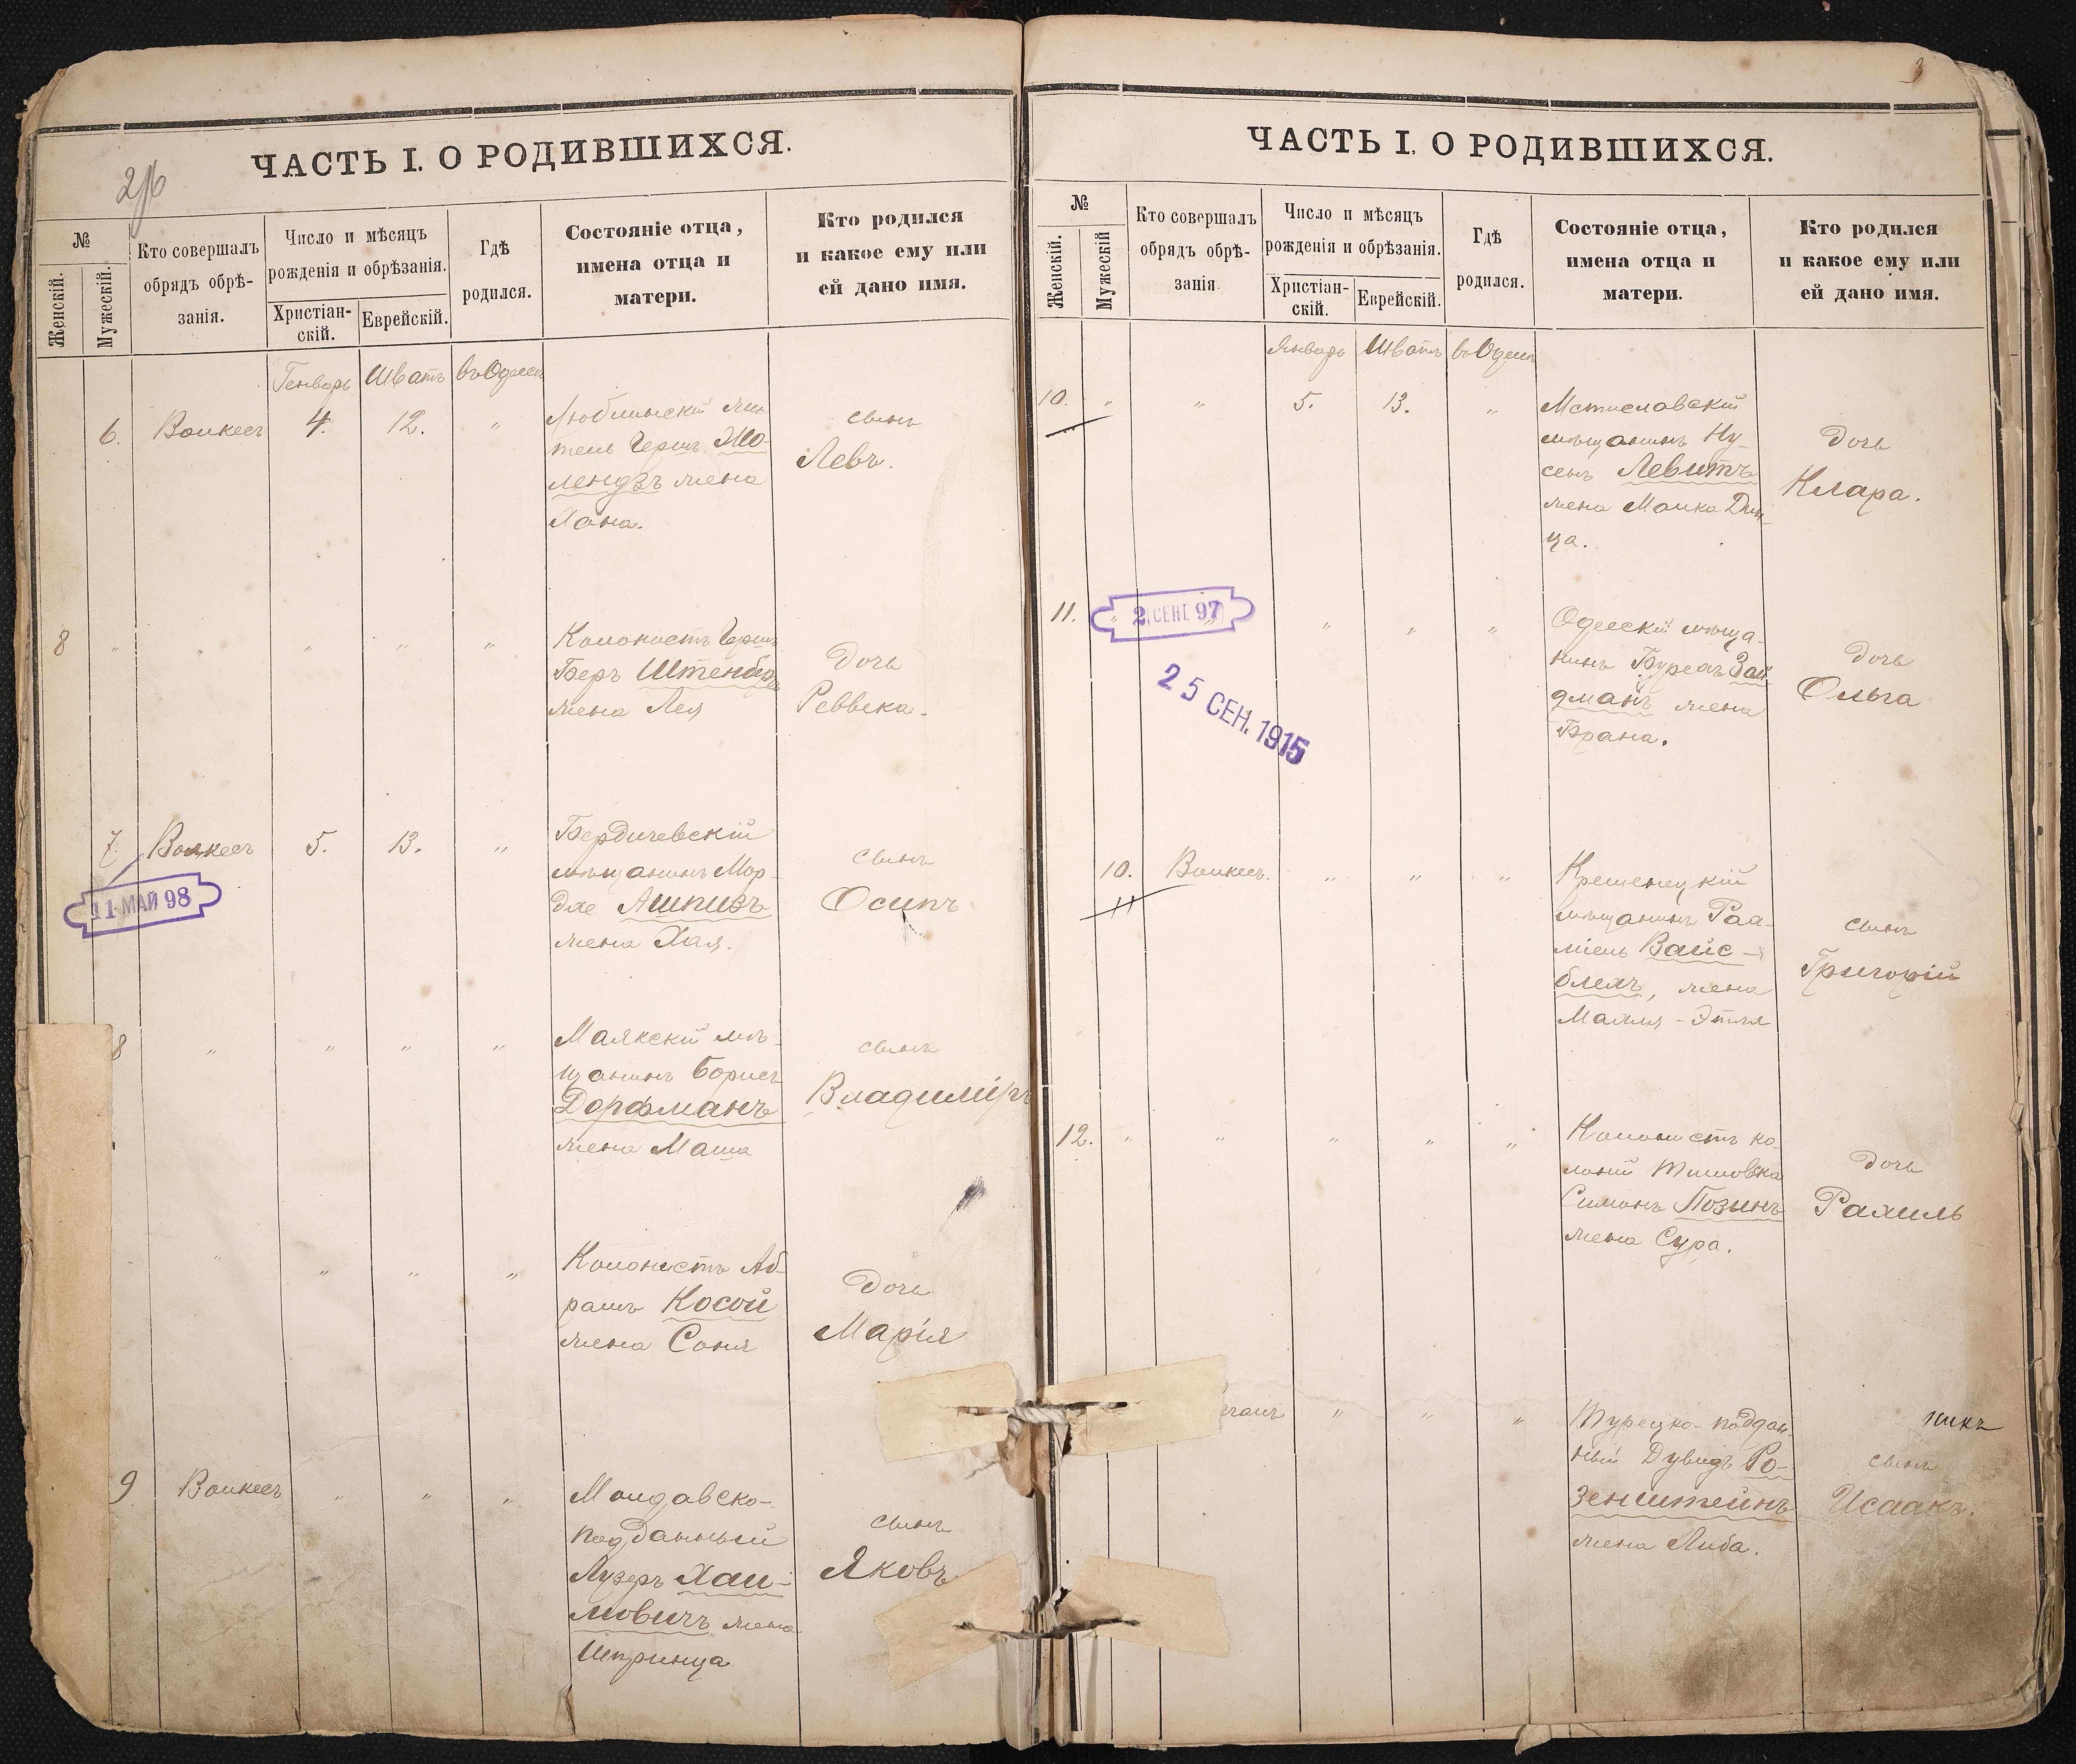 ЧАСТЬ I. О РОДИВШИХСЯ.
№
Женскій.
Мужескій.
Кто совершалъ
обрядъ обрѣ-
занія.
Число и мѣсяцъ
рожденія и обрѣзанія.
Христіан-
скій.
Еврейскій.
Гдѣ
родился.
Состояніе отца,
имена отца и
матери.
Кто родился
и какое ему или
ей дано имя.
Генварь Шватъ въ Одессѣ
6. 4. 12. "
жена
Хана.
сынъ
Левъ.
8 " " " " "
Колонистъ Герш
Беръ Штенберг
жена Лея
Дочь
Реввека.
7 5. 13. "
11 МАЙ 98
Бердичевскій
мѣщанинъ Мор-
дхе Ашпизъ
жена Хая.
сынъ
Осипъ
8 " " " "
Маякскій мѣ-
щанинъ Борисъ
Дорфманъ
жена Маша
сынъ
Владиміръ
" " " "
Колонистъ Аб-
рамъ Косой
жена Соня
Дочь
Марія
9 " " "
Молдавско-
подданный
Лузеръ Хаи-
мовичъ жена
Шпринца
сынъ
Яковъ
3
ЧАСТЬ I. О РОДИВШИХСЯ.
№
Женскій.
Мужескій
Кто совершалъ
обрядъ обрѣ-
занія
Число и мѣсяцъ
рожденія и обрѣзанія.
Христіан-
скій.
Еврейскій.
Гдѣ
родился.
Состояніе отца,
имена отца и
матери.
Кто родился
и какое ему или
ей дано имя.
Январь Шватъ въ Одессѣ
10. " " 5. 13. "
Мстиславскій
мѣщанинъ Ну-
сенъ Левитъ
жена Малка Дин-
ца.
Дочь
Клара.
11. " " "
2 СЕНТ 97
25 СЕН. 1915
Одесскій мѣща-
нинъ Зай
дманъ жена
Брана.
Дочь
Ольга
10. " " "
11
Кременецкій
мѣщанинъ
Вайс-
блехъ, жена
Малля-Этля
сынъ
Григорій
12. " " " " "
Колонистъ ко-
лоніи
Симонъ Позинъ
жена Сура.
Дочь
Рахиль
" " "
Турецко-поддан-
ный Дувидъ Ро-
зенштейнъ
жена Либа.
сынъ
Исаакъ.